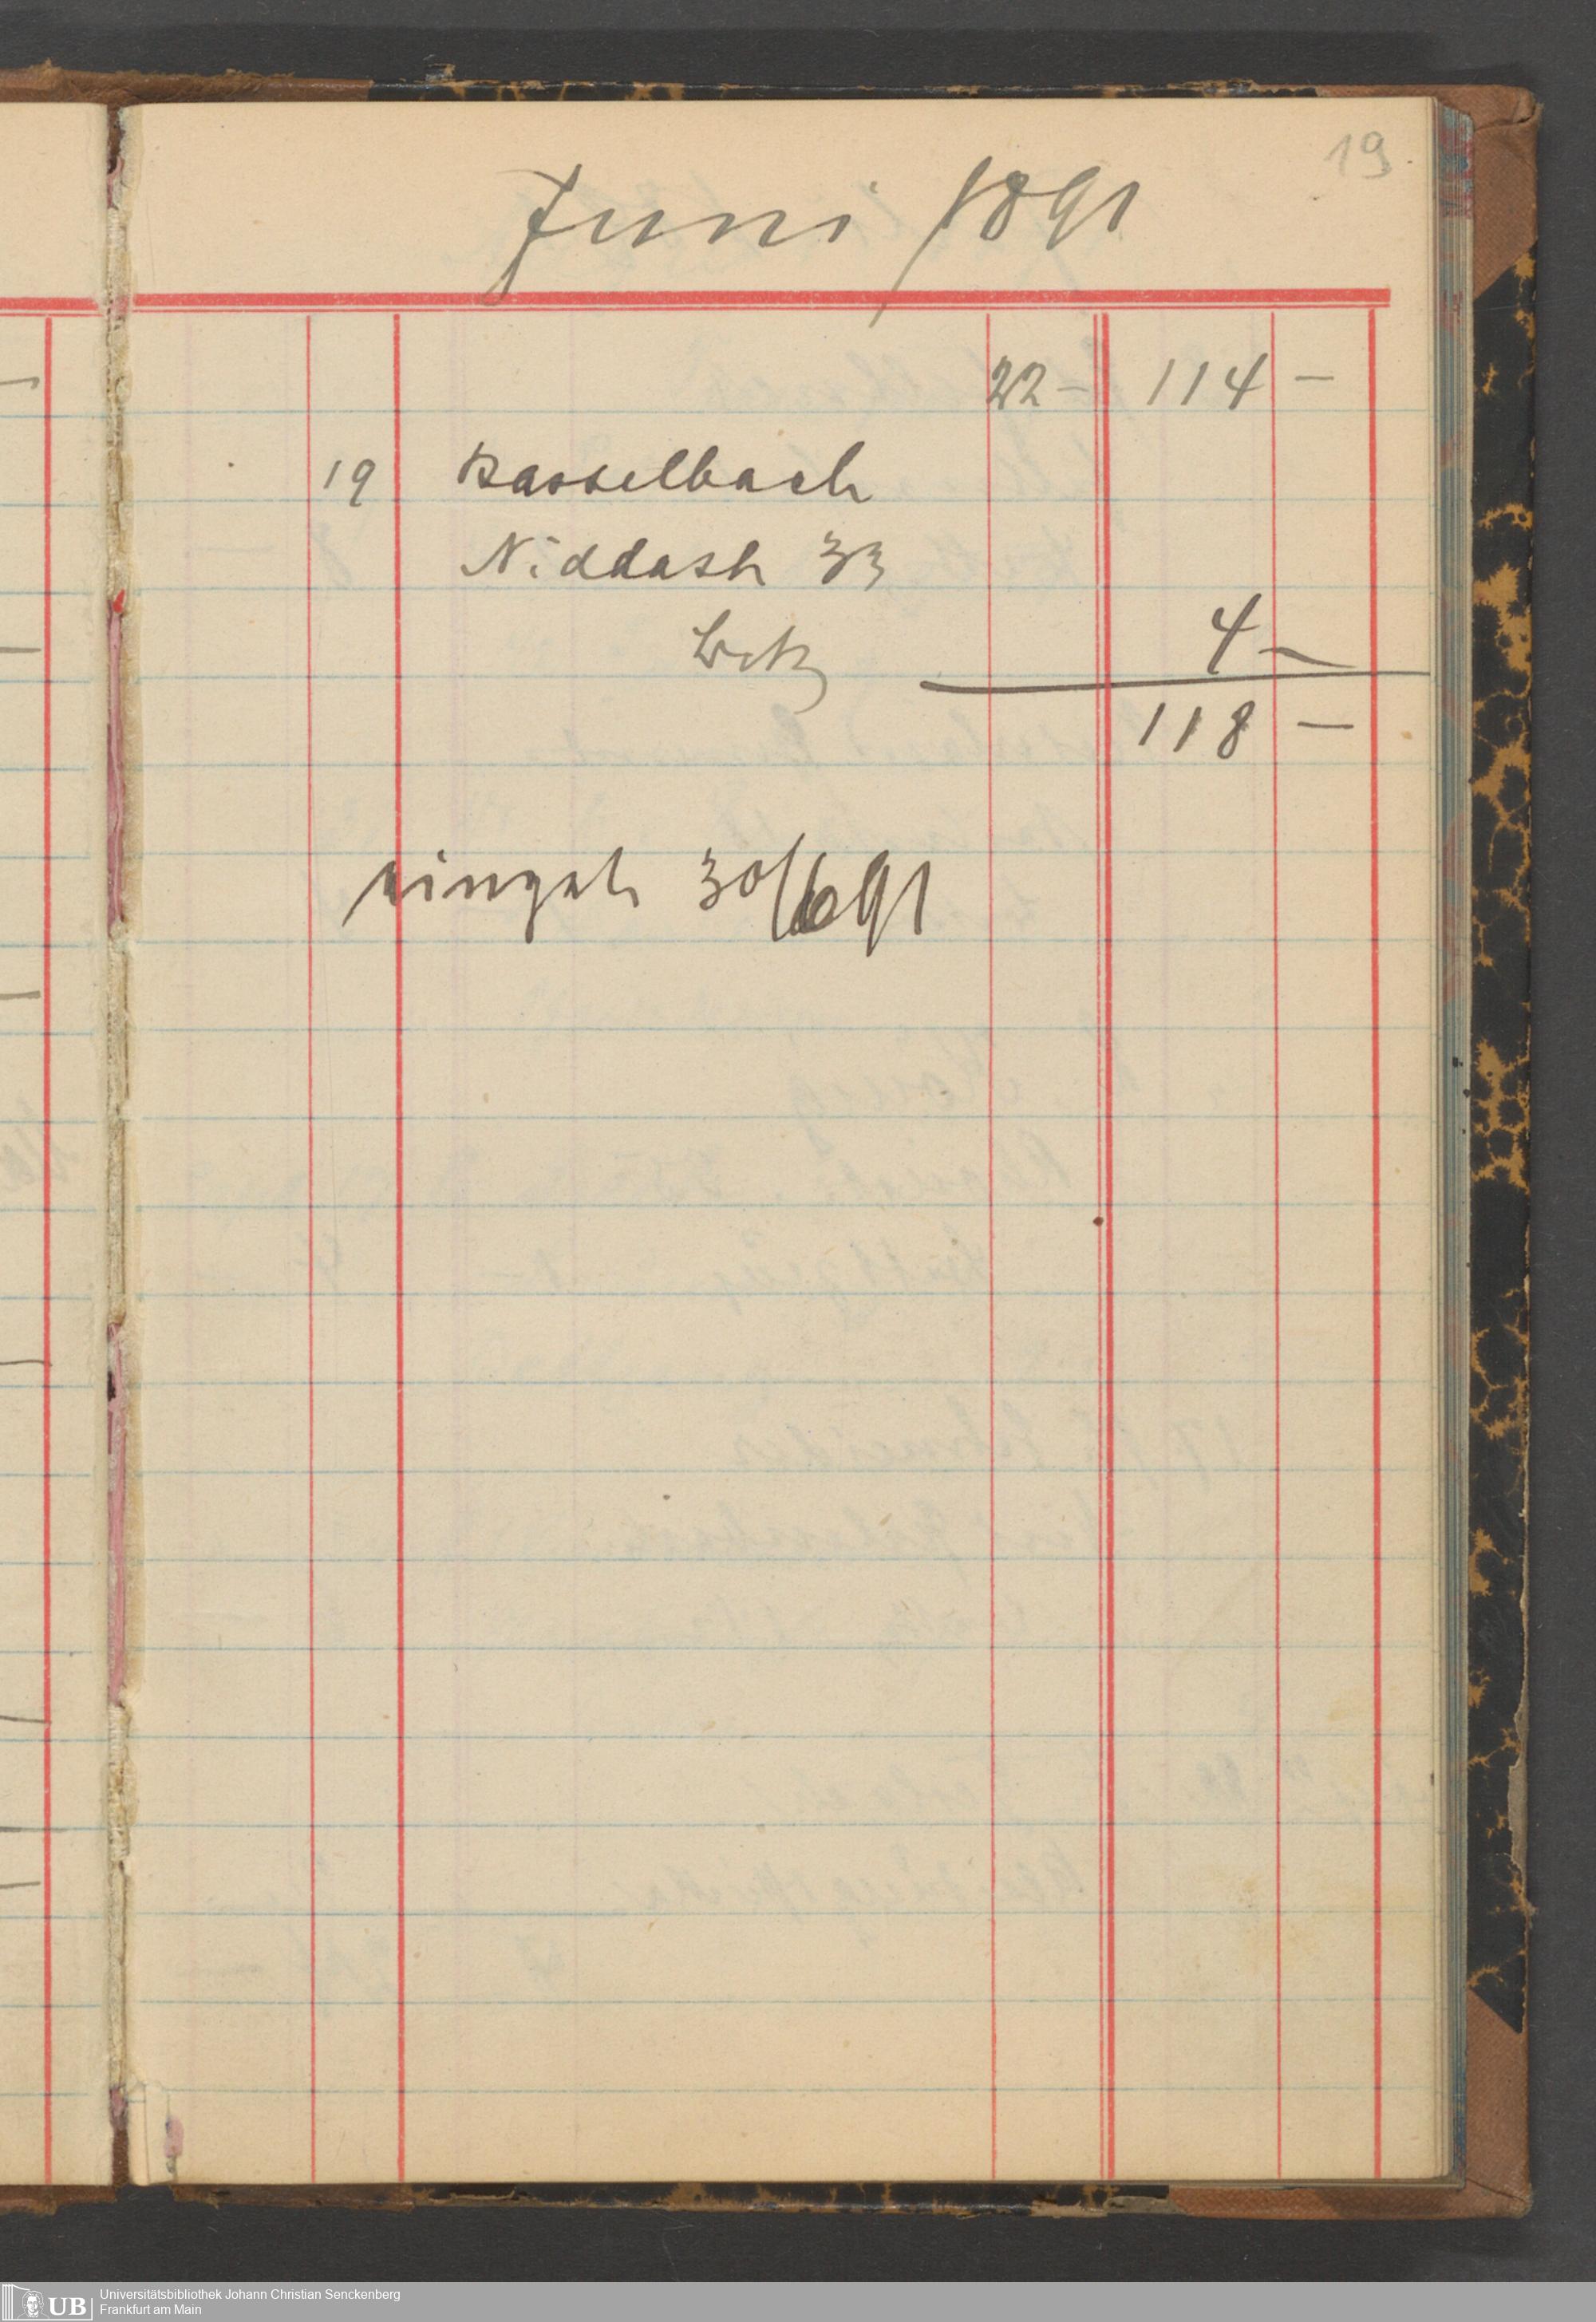 19
Juni 1891
22 — 114 —
19 Basselbach
Niddastr 33
4 —
118 —
eingetr 30/6 91
UB
Universitätsbibliothek Johann Christian Senckenberg
Frankfurt am Main